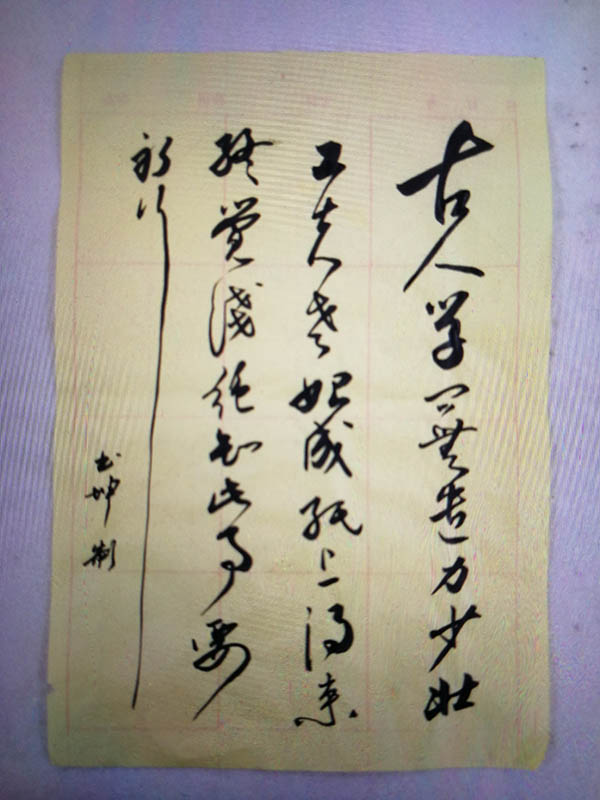 古人学问無遗力少壮
工夫老始成纸上得来
终觉淺绝知此事要
躬行